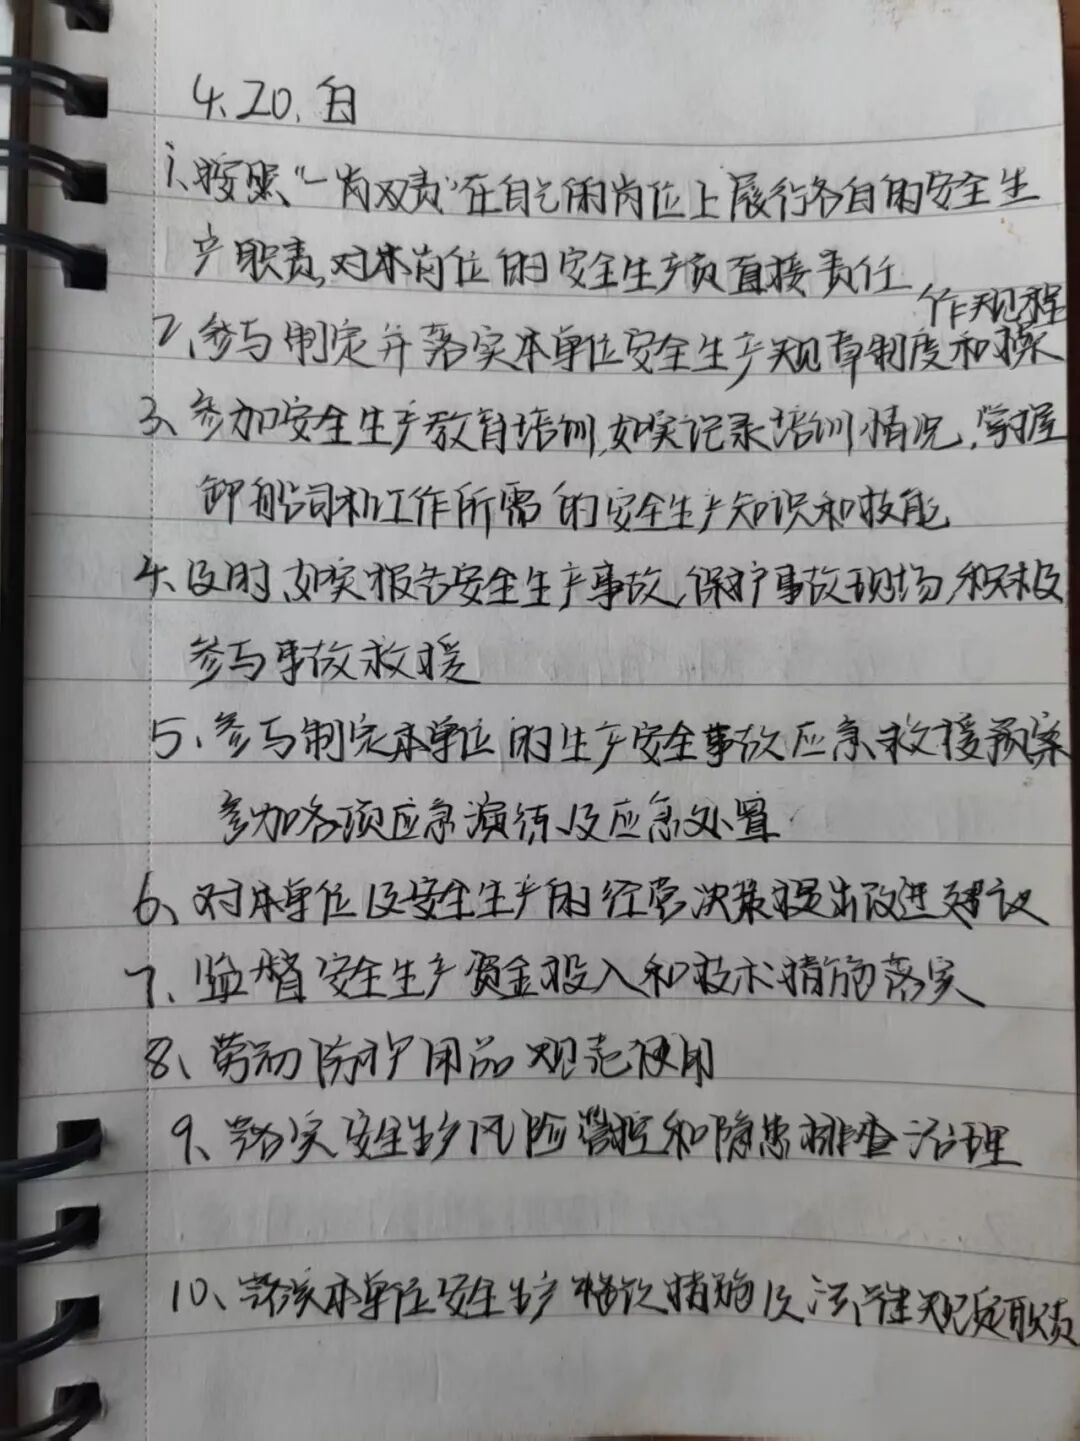 4.20.白
1、按照“一岗双责”在自己的岗位上履行各自的安全生
产职责,对本岗位的安全生产负直接责任
作规程
2、参与制定并落实本单位安全生产规章制度和操
3、参加安全生产教育培训,如实记录培训情况,掌握
卸船司机工作所需的安全生产知识和技能
4、及时、如实报告安全生产事故,保护事故现场,积极
参与事故救援
5、参与制定本单位的生产安全事故应急救援预案
参加各项应急演练及应急处置
6、对本单位及安全生产的经营决策提出改进建议
7、监督安全生产资金投入和技术措施落实
8、劳动防护用品规范使用
9、落实安全生产风险管控和隐患排查治理
10、落实本单位安全生产措施及法律规定职责